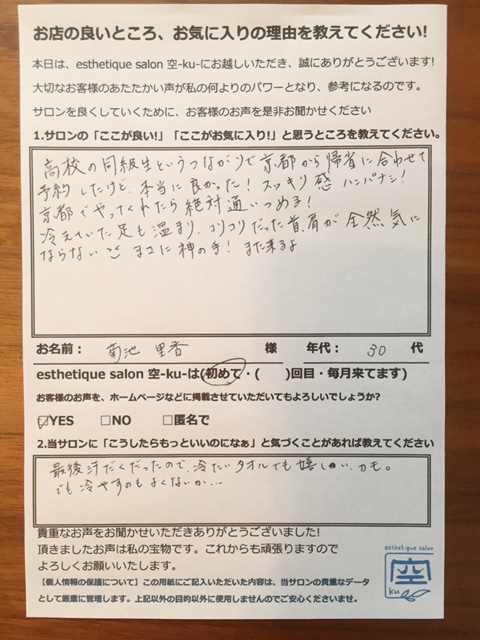 お店の良いところ、お気に入りの理由を教えてください!
本日は、esthetique salon 空-ku-にお越しいただき、誠にありがとうございます!
大切なお客様のあたたかい声が私の何よりのパワーとなり、参考になるのです。
サロンを良くしていくために、お客様のお声を是非お聞かせください
1.サロンの「ここが良い!」「ここがお気に入り!」と思うところを教えてください。
高校の同級生というつながりで京都から帰省に合わせて
予約したけど、本当に良かった!スッキリ感 ハンパナシ!
京都でやってくれたら絶対通いつめる!
冷えていた足も温まり、コリコリだった首、肩が全然気に
ならない まさに神の手!また来るよ
お名前: 菊池 里香 様 年代: 30 代
esthetique salon 空-ku-は(初めて・( )回目・毎月来てます)
お客様のお声を、ホームページなどに掲載させていただいてもよろしいでしょうか?
☑YES □NO □匿名で
2.当サロンに「こうしたらもっといいのになぁ」と気づくことがあれば教えてください
最後汗だくだったので、冷たいタオルでも嬉しい、かも。
でも冷やすのもよくないか…
貴重なお声をお聞かせいただきありがとうございました!
頂きましたお声は私の宝物です。これからも頑張りますので
よろしくお願いいたします。
【個人情報の保護について】この用紙にご記入いただいた内容は、当サロンの貴重なデータ
として厳重に管理します。上記以外の目的以外に使用しませんのでご安心くださいませ。
esthetique salon
空
ku